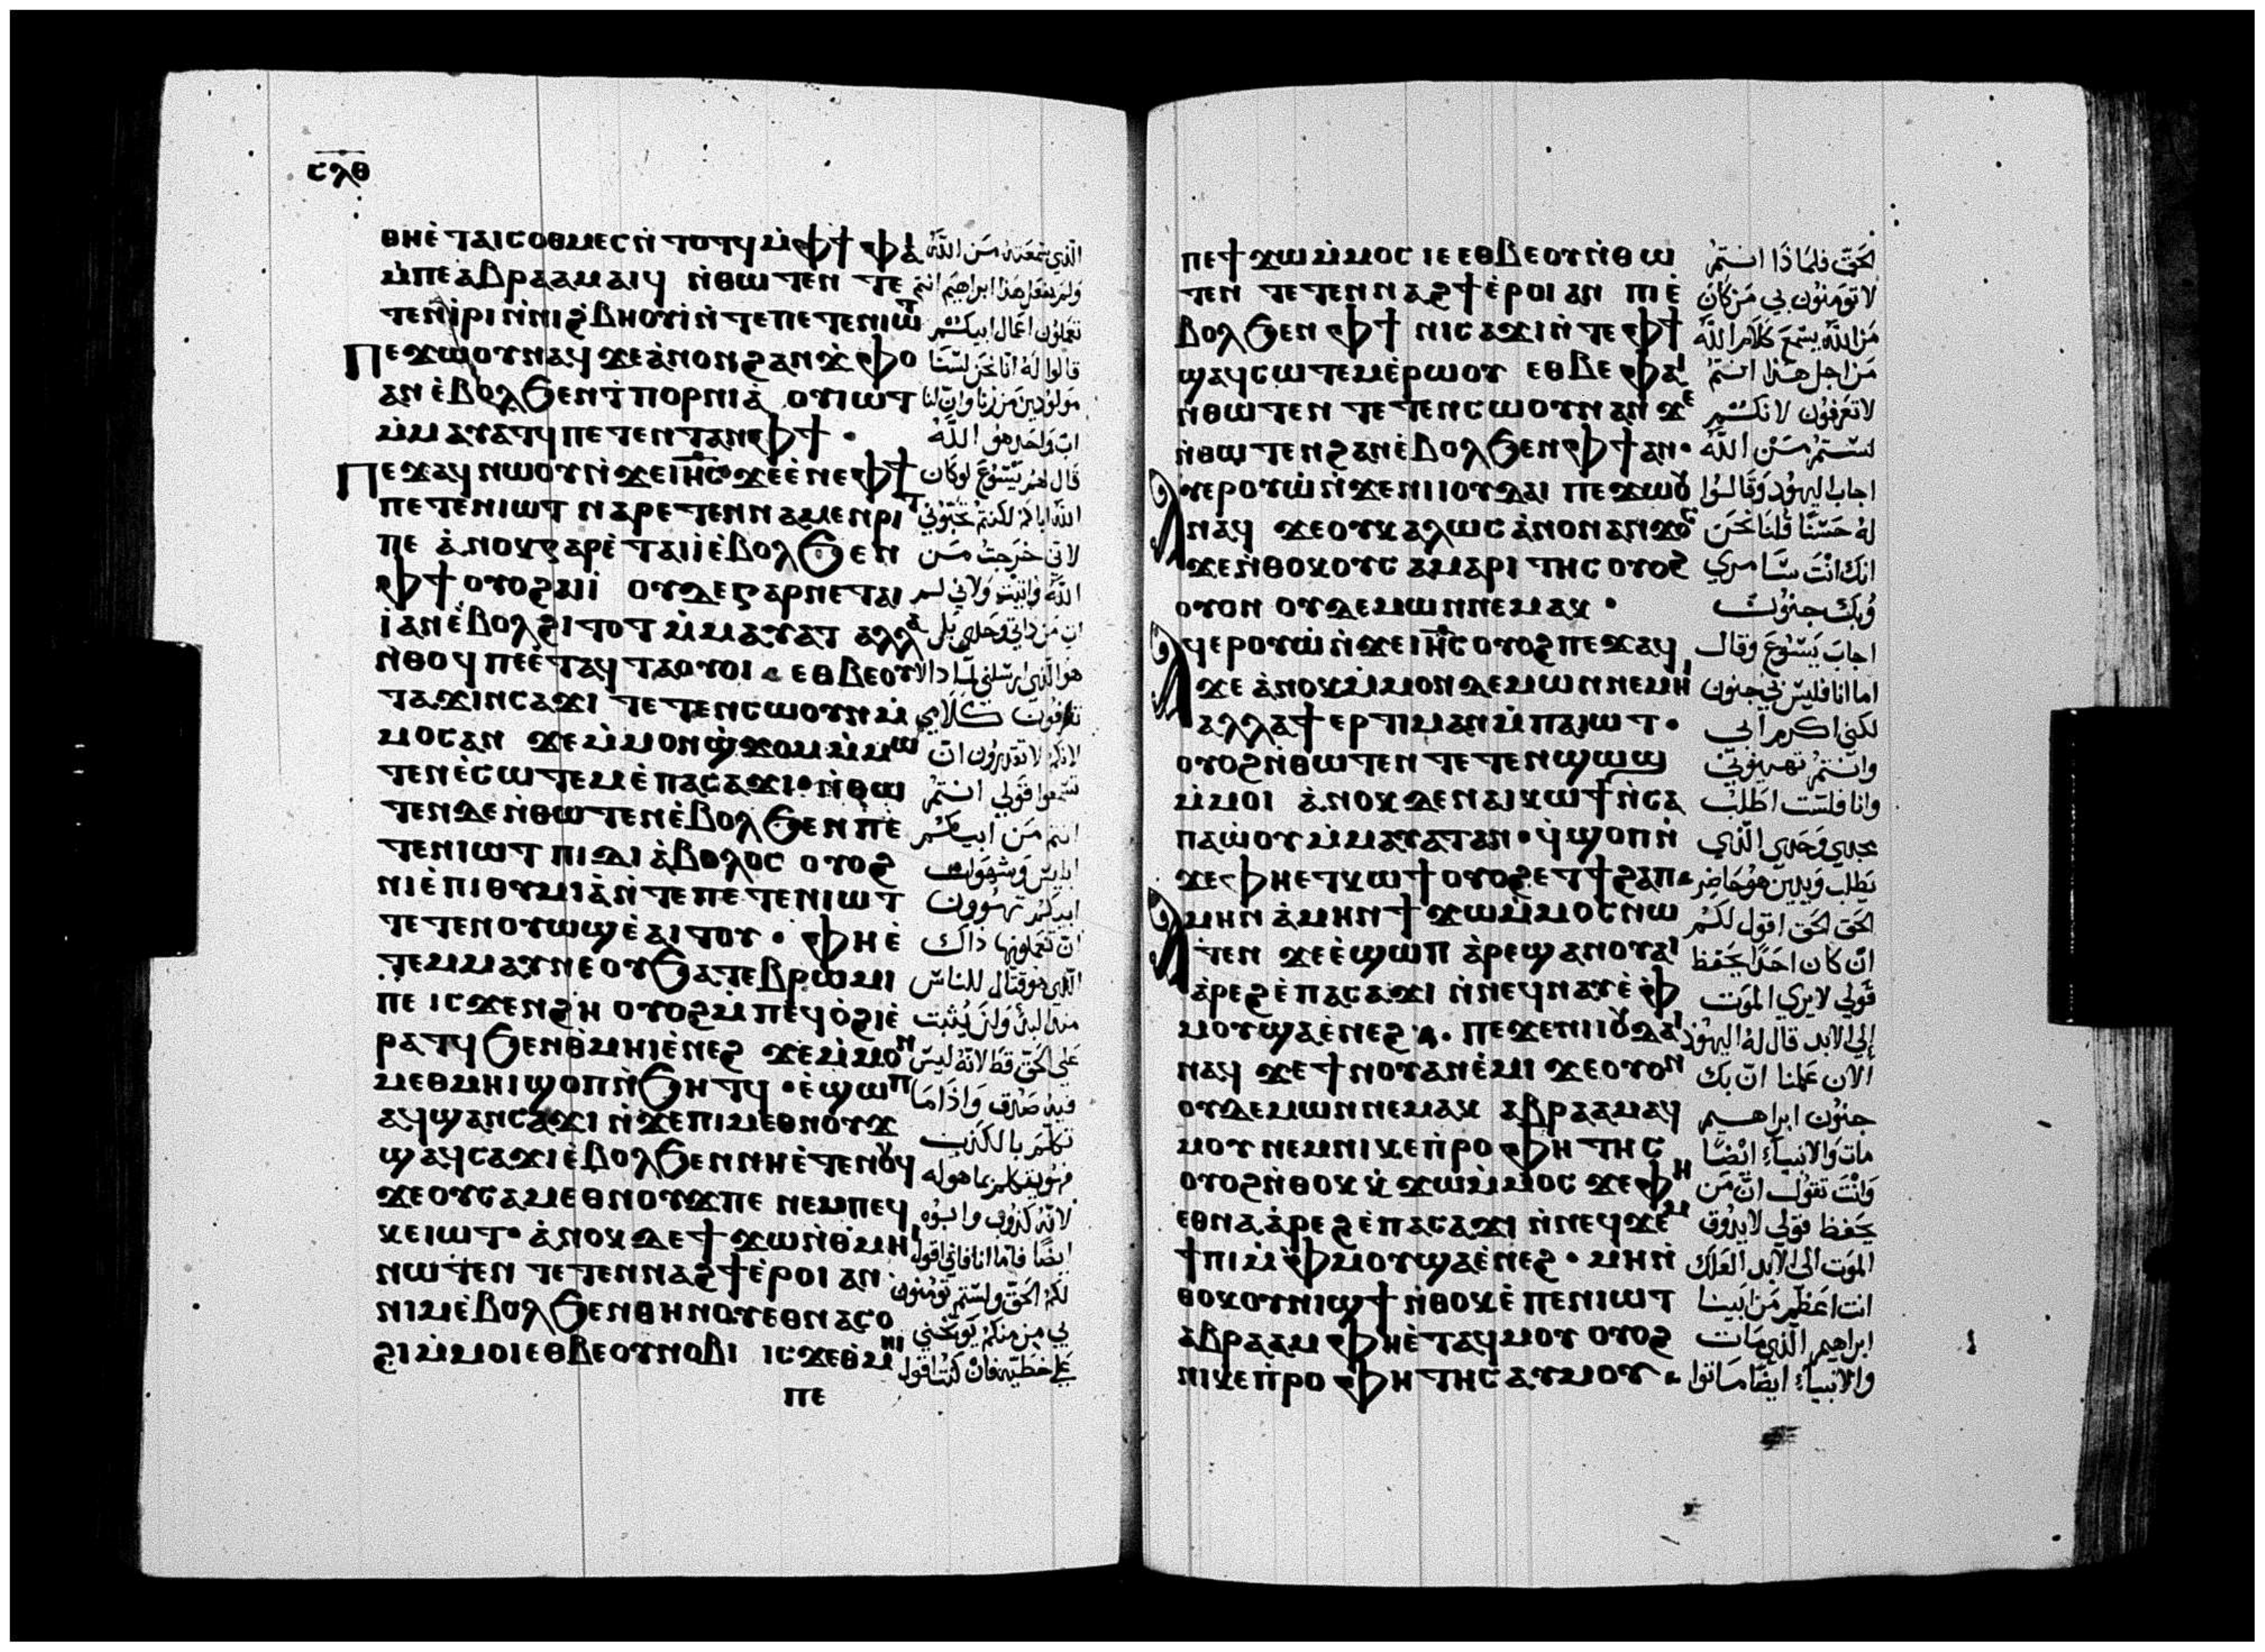 ⲥⲗⲑ
ⲑⲙⲏⲓ̀ ⲉ̀ⲧⲁⲓⲥⲟⲑⲙⲉⲥ ⲛ̀ⲧⲟⲧϥ ⲙ̀ⲫϯ ⲫⲁⲓ الذي سمعته من الله
ⲙ̀ⲡⲉ ⲁⲃⲣⲁⲁⲙ ⲁⲓϥ ⲛ̀ⲑⲱⲧⲉⲛ ⲧⲉ ولم يفعل هذا ابراهيم انتم
ⲧⲉⲛⲓ̀ⲣⲓ ⲛ̀ⲛⲓϩⲃⲏⲟⲩⲓ̀ ⲛ̀ⲧⲉ ⲡⲉⲧⲉⲛⲓⲱⲧ تعملون اعمال ابيكم
Ⲡⲉϫⲱⲟⲩ ⲛⲁϥ ϫⲉ ⲁ̀ⲛⲟⲛ ϩⲁⲛϫ̀ⲫⲟ قالوا له انا نحن لسنا
ⲁⲛ ⲉ̀ⲃⲟⲗϧⲉⲛ ϯⲡⲟⲣⲛⲓⲁ̀ ⲟⲩⲓⲱⲧ مولودين من زنا وان لنا
ⲙ̀ⲙⲁⲩⲁⲧϥ ⲡⲉⲧⲉⲛⲧⲁⲛ ⲫϯ · اب واحد هو الله
Ⲡⲉϫⲁϥ ⲛⲱⲟⲩ ⲛ̀ϫⲉ ⲓⲏⲥ ϫⲉ ⲉ̀ⲛⲉ ⲫϯ قال لهم يسوع لو كان
ⲡⲉⲧⲉⲛⲓⲱⲧ ⲛⲁⲣⲉⲧⲉⲛⲛⲁⲙⲉⲛⲣⲓⲧ الله اباكم لكنتم تحبوني
ⲡⲉ ⲁ̀ⲛⲟⲕ ⲅⲁⲣ ⲉ̀ⲧⲁⲓⲓ̀ ⲉ̀ⲃⲟⲗϧⲉⲛ لاني خرجت من
ⲫϯ ⲟⲩⲟϩ ⲁⲓⲓ̀ ⲟⲩⲇⲉ ⲅⲁⲣ ⲛⲉⲧⲁⲓ الله واتيت ولاني لم
ⲓ̀ ⲁⲛ ⲉ̀ⲃⲟⲗϩⲓⲧⲟⲧ ⲙ̀ⲙⲁⲩⲁⲧ ⲁⲗⲗⲁ ات من ذاتي وحدي بل
ⲛ̀ⲑⲟϥ ⲡⲉ ⲉ̀ⲧⲁϥⲧⲁⲟⲩⲟⲓ · ⲉⲑⲃⲉⲟⲩ هو الذي ارسلني لماذا لا
ⲧⲁϫⲓⲛⲥⲁϫⲓ ⲧⲉⲧⲉⲛⲥⲱⲟⲩⲛ ⲙ̀ تعرفون كلامي
ⲙⲟⲥ ⲁⲛ ϫⲉ ⲙ̀ⲙⲟⲛ ϣ̀ϫⲟⲙ ⲙ̀ⲙⲱ لانكم لا تقدرون ان
ⲧⲉⲛ ⲉ̀ⲥⲱⲧⲉⲙ ⲉ̀ⲡⲁⲥⲁϫⲓ · ⲛ̀ⲑⲱ تسمعوا قولي انتم
ⲧⲉⲛ ⲇⲉ ⲛ̀ⲑⲱⲧⲉⲛ ⲉ̀ⲃⲟⲗϧⲉⲛ ⲡⲉ انتم من ابيكم
ⲧⲉⲛⲓⲱⲧ ⲡⲓⲇⲓⲁ̀ⲃⲟⲗⲟⲥ ⲟⲩⲟϩ ابليس وشهوات
ⲛⲓⲉ̀ⲡⲓⲑⲩⲙⲓⲁ̀ ⲛ̀ⲧⲉ ⲡⲉⲧⲉⲛⲓⲱⲧ ابيكم تهوون
ⲧⲉⲧⲉⲛⲟⲩⲱϣ ⲉ̀ⲁⲓⲧⲟⲩ · ⲫⲏ ⲉ̀ ان تعملوها ذاك
ⲧⲉⲙⲙⲁⲩ ⲛⲉ ⲟⲩϧⲁⲧⲉⲃⲣⲱⲙⲓ الذي هو قتال للناس
ⲡⲉ ⲓⲥϫⲉⲛ ϩⲏ ⲟⲩⲟϩ ⲙ̀ⲡⲉϥⲟ̀ϩⲓ ⲉ̀ منذ البدء ولم يثبت
ⲣⲁⲧϥ ϧⲉⲛ ⲑ̀ⲙⲏⲓ ⲉ̀ⲛⲉϩ ϫⲉ ⲙ̀ⲙⲟⲛ على الحق قط لانه ليس
ⲙⲉⲑⲙⲏⲓ ϣⲟⲡ ⲛ̀ϧⲏⲧϥ · ⲉ̀ϣⲱⲡ فيه صدق واذا ما
ⲁϥϣⲁⲛⲥⲁϫⲓ ⲛ̀ϫⲉ ⲡⲓⲙⲉⲑⲛⲟⲩϫ تكلم بالكذب
ϣⲁϥⲥⲁϫⲓ ⲉ̀ⲃⲟⲗϧⲉⲛ ⲛⲏ ⲉ̀ⲧⲉⲛⲟⲩϥ فهو يتكلم بما هو له
ϫⲉ ⲟⲩⲥⲁⲙⲉⲑⲛⲟⲩϫ ⲡⲉ ⲛⲉⲙ ⲡⲉϥ لانه كذوب وابوه
ⲕⲉⲓⲱⲧ · ⲁ̀ⲛⲟⲕ ⲇⲉ ϯϫⲱ ⲛ̀ⲑ̀ⲙⲏⲓ ايضا فاما انا فاني اقول
ⲛⲱⲧⲉⲛ ⲧⲉⲧⲉⲛⲛⲁϩϯ ⲉ̀ⲣⲟⲓ ⲁⲛ لكم الحق ولستم تومنون
ⲛⲓⲙ ⲉ̀ⲃⲟⲗϧⲉⲛ ⲑⲏⲛⲟⲩ ⲉⲑⲛⲁⲥⲟ بي من منكم يوبخني
ϩⲓ ⲙ̀ⲙⲟⲓ ⲉⲑⲃⲉ ⲟⲩⲛⲟⲃⲓ ⲓⲥϫⲉ ⲑ̀ⲙⲏⲓ على خطية فان كنت اقول
ⲡⲉ
ⲡⲉϯϫⲱ ⲙ̀ⲙⲟⲥ ⲓⲉ ⲉⲑⲃⲉⲟⲩ ⲛ̀ⲑⲱ الحق فلماذا انتم
ⲧⲉⲛ ⲧⲉⲧⲉⲛⲛⲁϩϯ ⲉ̀ⲣⲟⲓ ⲁⲛ ⲡⲓⲉ̀ لا تومنون بي من كان
ⲃⲟⲗϧⲉⲛ ⲫϯ ⲛⲓⲥⲁϫⲓ ⲛ̀ⲧⲉ ⲫϯ من الله يسمع كلام الله
ϣⲁϥⲥⲱⲧⲉⲙ ⲉ̀ⲣⲱⲟⲩ ⲉⲑⲃⲉ ⲫⲁⲓ من اجل هذا انتم
ⲛ̀ⲑⲱⲧⲉⲛ ⲧⲉⲧⲉⲛⲥⲱⲟⲩⲛ ⲁⲛ ϫⲉ لا تعرفون لانكم
ⲛ̀ⲑⲱⲧⲉⲛ ϩⲁⲛⲉ̀ⲃⲟⲗϧⲉⲛ ⲫϯ ⲁⲛ · لستم من الله
Ⲁⲩⲉⲣⲟⲩⲱ̀ ⲛ̀ϫⲉ ⲛⲓⲓⲟⲩⲇⲁⲓ ⲡⲉϫⲱⲟⲩ اجاب اليهود وقالوا
ⲛⲁϥ ϫⲉ ⲟⲩ ⲕⲁⲗⲱⲥ ⲁ̀ⲛⲟⲛ ⲁⲛϫⲟⲥ له حسنا قلنا نحن
ϫⲉ ⲛ̀ⲑⲟⲕ ⲟⲩⲥⲁⲙⲁⲣⲓⲧⲏⲥ ⲟⲩⲟϩ انك انت سامري
ⲟⲩⲟⲛ ⲟⲩⲇⲉⲙⲱⲛ ⲛⲉⲙⲁⲕ · وبك جنون
Ⲁϥⲉⲣⲟⲩⲱ̀ ⲛ̀ϫⲉ ⲓⲏⲥ ⲟⲩⲟϩ ⲡⲉϫⲁϥ اجاب يسوع وقال
ϫⲉ ⲁ̀ⲛⲟⲕ ⲙ̀ⲙⲟⲛ ⲇⲉⲙⲱⲛ ⲛⲉⲙⲏⲓ اما انا فليس بي جنون
ⲁⲗⲗⲁ ϯⲉⲣⲧⲓⲙⲁⲛ ⲙ̀ⲡⲁⲓⲱⲧ · لكني اكرم ابي
ⲟⲩⲟϩ ⲛ̀ⲑⲱⲧⲉⲛ ⲧⲉⲧⲉⲛϣⲱϣ وانتم تهينوني
ⲙ̀ⲙⲟⲓ ⲁ̀ⲛⲟⲕ ⲇⲉ ⲛⲁⲓⲕⲱϯ ⲛ̀ⲥⲁ وانا فلست اطلب
ⲡⲁⲱ̀ⲟⲩ ⲙ̀ⲙⲁⲩⲁⲧ ⲁⲛ · ϥ̀ϣⲟⲡ ⲛ̀ مجدي وحدي الذي
ϫⲉ ⲫⲏ ⲉⲧⲕⲱϯ ⲟⲩⲟϩ ⲉⲧϯϩⲁⲡ · يطلب ويدين هو حاضر
Ⲁⲙⲏⲛ ⲁ̀ⲙⲏⲛ ϯϫⲱ ⲙ̀ⲙⲟⲥ ⲛⲱ الحق الحق اقول لكم
ⲧⲉⲛ ϫⲉ ⲉ̀ϣⲱⲡ ⲁ̀ⲣⲉϣⲁⲛ ⲟⲩⲁⲓ ان كان احدا يحفظ
ⲁ̀ⲣⲉϩ ⲉ̀ⲡⲁⲥⲁϫⲓ ⲛ̀ⲛⲉϥⲛⲁⲩ ⲉ̀ⲫ قولي لا يرى الموت
ⲙⲟⲩ ϣⲁ ⲉ̀ⲛⲉϩ · ⲡⲉϫⲉ ⲛⲓⲓⲟⲩⲇⲁⲓ الى الابد قال له اليهود
ⲛⲁϥ ϫⲉ ϯⲛⲟⲩ ⲁⲛⲉ̀ⲙⲓ ϫⲉ ⲟⲩⲟⲛ الان علمنا ان بك
ⲟⲩⲇⲉⲙⲱⲛ ⲛⲉⲙⲁⲕ ⲁⲃⲣⲁⲁⲙ ⲁϥ جنون ابراهيم
ⲙⲟⲩ ⲛⲉⲙ ⲛⲓⲕⲉⲡ̀ⲣⲟⲫⲏⲧⲏⲥ مات والانبياء ايضا
ⲟⲩⲟϩ ⲛ̀ⲑⲟⲕ ⲕ̀ϫⲱ ⲙ̀ⲙⲟⲥ ϫⲉ ⲫⲏ وانت تقول ان من
ⲉⲑⲛⲁⲁ̀ⲣⲉϩ ⲉ̀ⲡⲁⲥⲁϫⲓ ⲛ̀ⲛⲉϥϫⲉⲙ يحفظ قولي لا يذوق
ϯⲡⲓ ⲙ̀ⲫⲙⲟⲩ ϣⲁ ⲉ̀ⲛⲉϩ · ⲙⲏ ⲛ̀ الموت الى الابد العلك
ⲑⲟⲕ ⲟⲩⲛⲓϣϯ ⲛ̀ⲑⲟⲕ ⲉ̀ⲡⲉⲛⲓⲱⲧ انت اعظم من ابينا
ⲁⲃⲣⲁⲁⲙ ⲫⲏ ⲉ̀ⲧⲁϥⲙⲟⲩ ⲟⲩⲟϩ ابراهيم الذي مات
ⲛⲓⲕⲉⲡ̀ⲣⲟⲫⲏⲧⲏⲥ ⲁⲩⲙⲟⲩ · والانبياء ايضا ماتوا